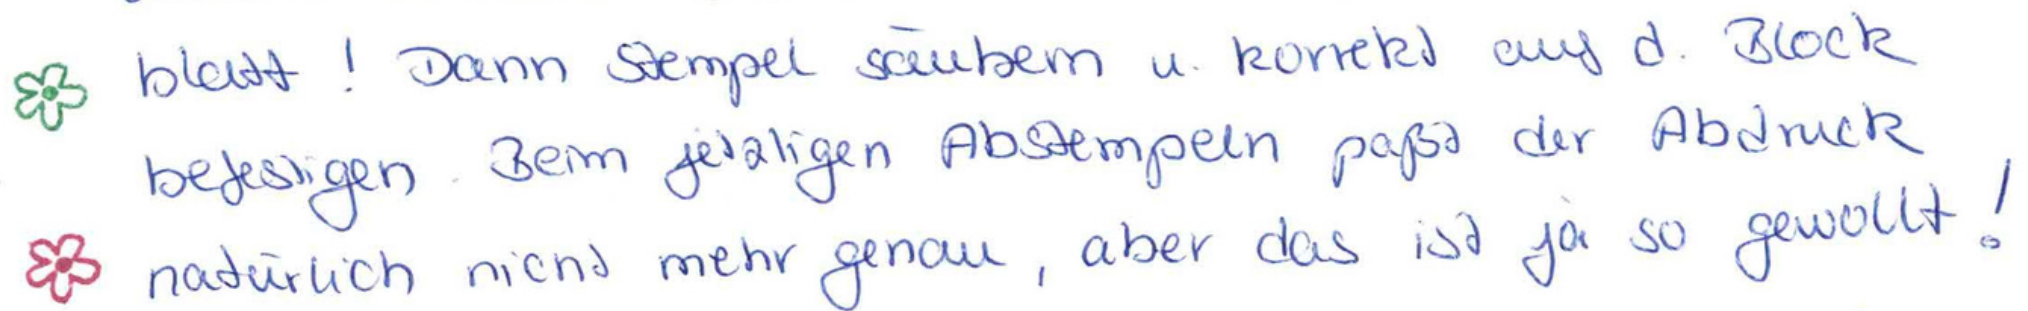 blatt! Dann Stempel säubern u. korrekt auf d. Block
befestigen. Beim jetzigen Abstempeln paßt der Abdruck
natürlich nicht mehr genau, aber das ist ja so gewollt!